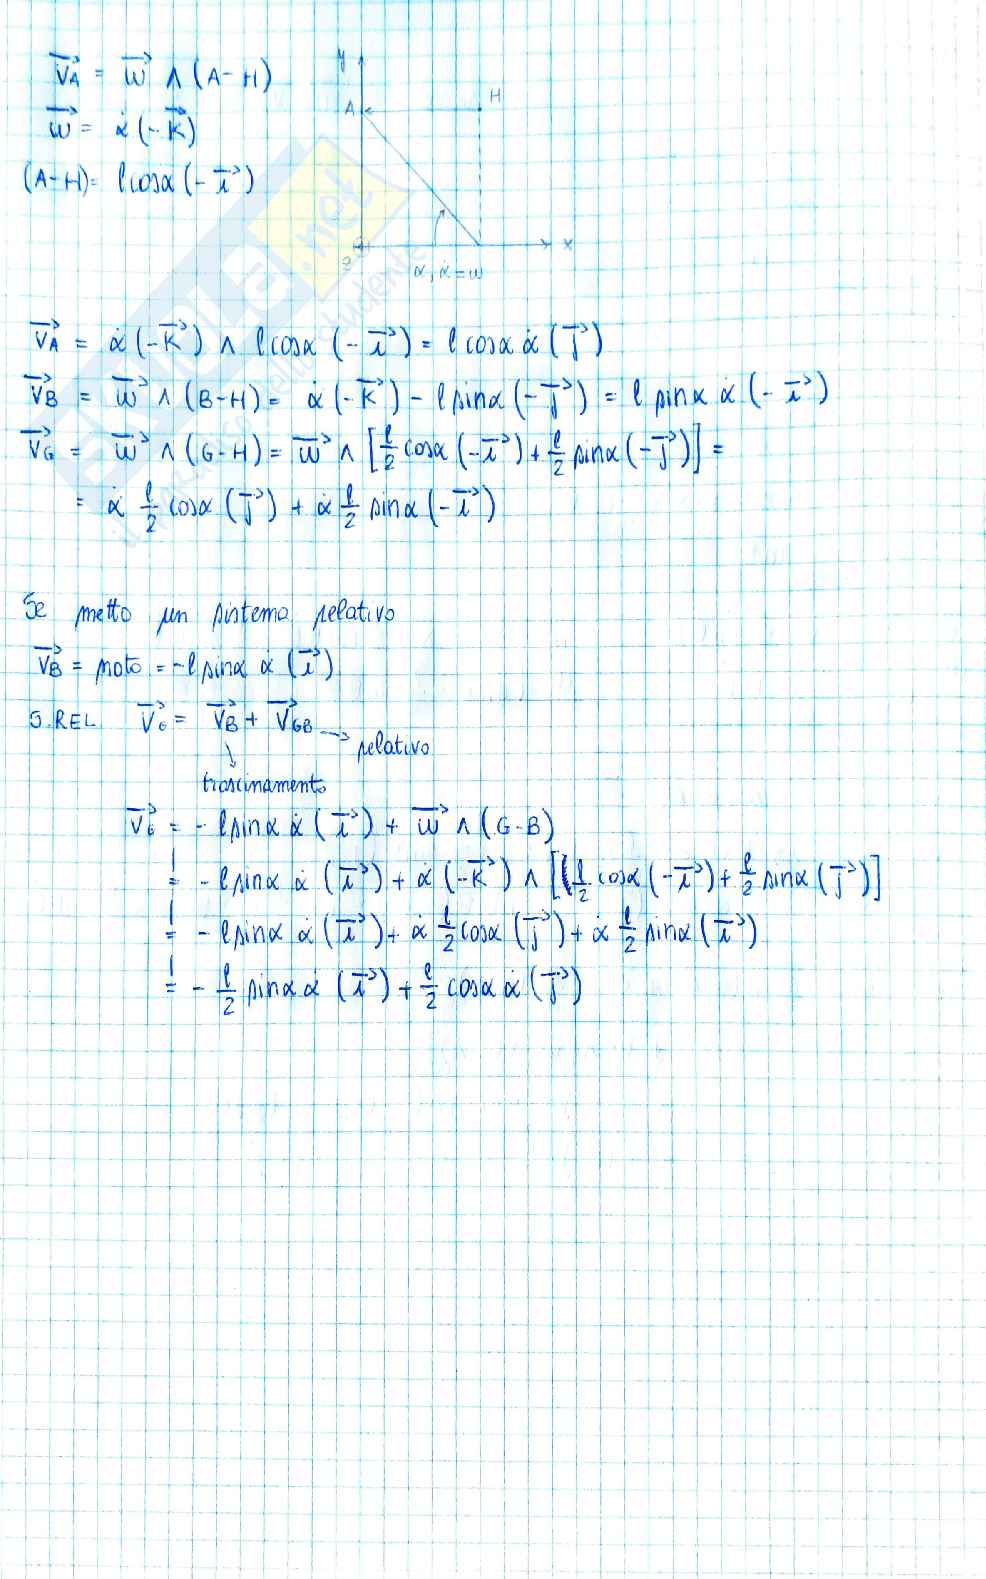 V⃗A = w⃗ ∧ (A-H)
w⃗ = α̇ (-K⃗)
(A-H)= l cosα (-i⃗)
y
A H
O x
α, α̇ = w
V⃗A = α̇ (-K⃗) ∧ l cosα (-i⃗) = l cosα α̇ (j⃗)
V⃗B = w⃗ ∧ (B-H) = α̇ (-K⃗) - l sinα (-j⃗) = l sinα α̇ (-i⃗)
V⃗G = w⃗ ∧ (G-H) = w⃗ ∧ [l/2 cosα (-i⃗) + l/2 sinα (-j⃗)] =
= α̇ l/2 cosα (j⃗) + α̇ l/2 sinα (-i⃗)
Se metto un sistema relativo
V⃗B = noto = -l sinα α̇ (i⃗)
S.REL V⃗G = V⃗B + V⃗GB → relativo
↓
trascinamento
V⃗G = - l sinα α̇ (i⃗) + w⃗ ∧ (G-B)
= - l sinα α̇ (i⃗) + α̇ (-K⃗) ∧ [(l/2 cosα (-i⃗) + l/2 sinα (j⃗)]
= - l sinα α̇ (i⃗) + α̇ l/2 cosα (j⃗) + α̇ l/2 sinα (i⃗)
= - l/2 sinα α̇ (i⃗) + l/2 cosα α̇ (j⃗)